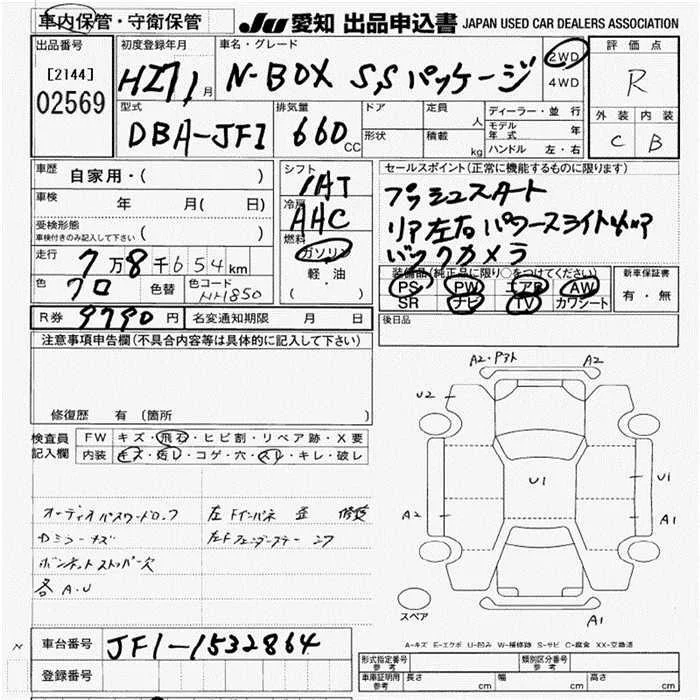 車内保管・守衛保管 JU 愛知 出品申込書 JAPAN USED CAR DEALERS ASSOCIATION
出品番号 初度登録年月 車名・グレード 評価点
[2144] H27 1 月 N-BOX SSパッケージ 2WD R
02569 4WD
型式 排気量 ドア 定員 人 ディーラー・並行 外装 内装
DBA-JF1 660 CC 形状 積載 kg モデル年式 年 C B
ハンドル 左・右
車歴 自家用・( ) シフト セールスポイント(正常に機能するものに限ります)
車検 年 月( 日) IAT プッシュスタート
冷房 AAC リア左右パワースライドドア
受検形態 ( ) バックカメラ
車検付きのみ記入して下さい 燃料 ガソリン
走行 7万8千654km 軽油 装備品(純正品に限り○をつけてください) 新車保証書
色 クロ 色替 色コード NH850 ( ) PS PW エアB AW 有・無
SR ナビ TV カワシート
R券 9790円 名変通知期限 月 日 後日品
注意事項申告欄(不具合内容等は具体的に記入して下さい)
A2・アト A2
U2
修復歴 有 (箇所 )
検査員 FW キズ・飛石・ヒビ割・リペア跡・X要
記入欄 内装 キズ・汚レ・コゲ・穴・スレ・キレ・破レ
U1 U1
オーディオパスワードロック 左Fインパネ 歪 修復
A2 A1
カミシーキズ
ボンネットストッパー欠
各A.U
スペア A1
車台番号 JF1-1532864 A-キズ E-エクボ U-凹み W-補修跡 S-サビ C-腐食 XX-交換済
登録番号 形式指定番号 参考 類別区分番号 参考
車庫証明用 参考 長さ cm 幅 cm 高さ cm